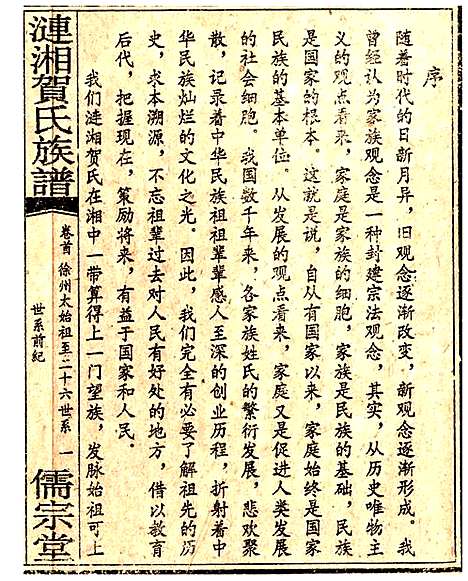 序
随着时代的日新月异，旧观念逐渐改变，新观念逐渐形成。我
曾经认为家族观念是一种封建宗法观念，其实，从历史唯物主
义的观点看来，家庭是家族的细胞，家族是民族的基础，民族
是国家的根本。这就是说，自从有国家以来，家庭始终是国家
民族的基本单位。从发展的观点看来，家庭又是促进人类发展
的社会细胞。我国数千年来，各家族姓氏的繁衍发展，悲欢聚
散，记录着中华民族祖祖辈辈感人至深的创业历程，折射着中
华民族灿烂的文化之光。因此，我们完全有必要了解祖先的历
史，求本溯源，不忘祖辈过去对人民有好处的地方，借以教育
后代，把握现在，策励将来，有益于国家和人民。
我们涟湘贺氏在湘中一带算得上一门望族，发脉始祖可上
漣湘賀氏族譜
卷首 徐州太始祖至二十六世系 一
世系前纪
儒宗堂